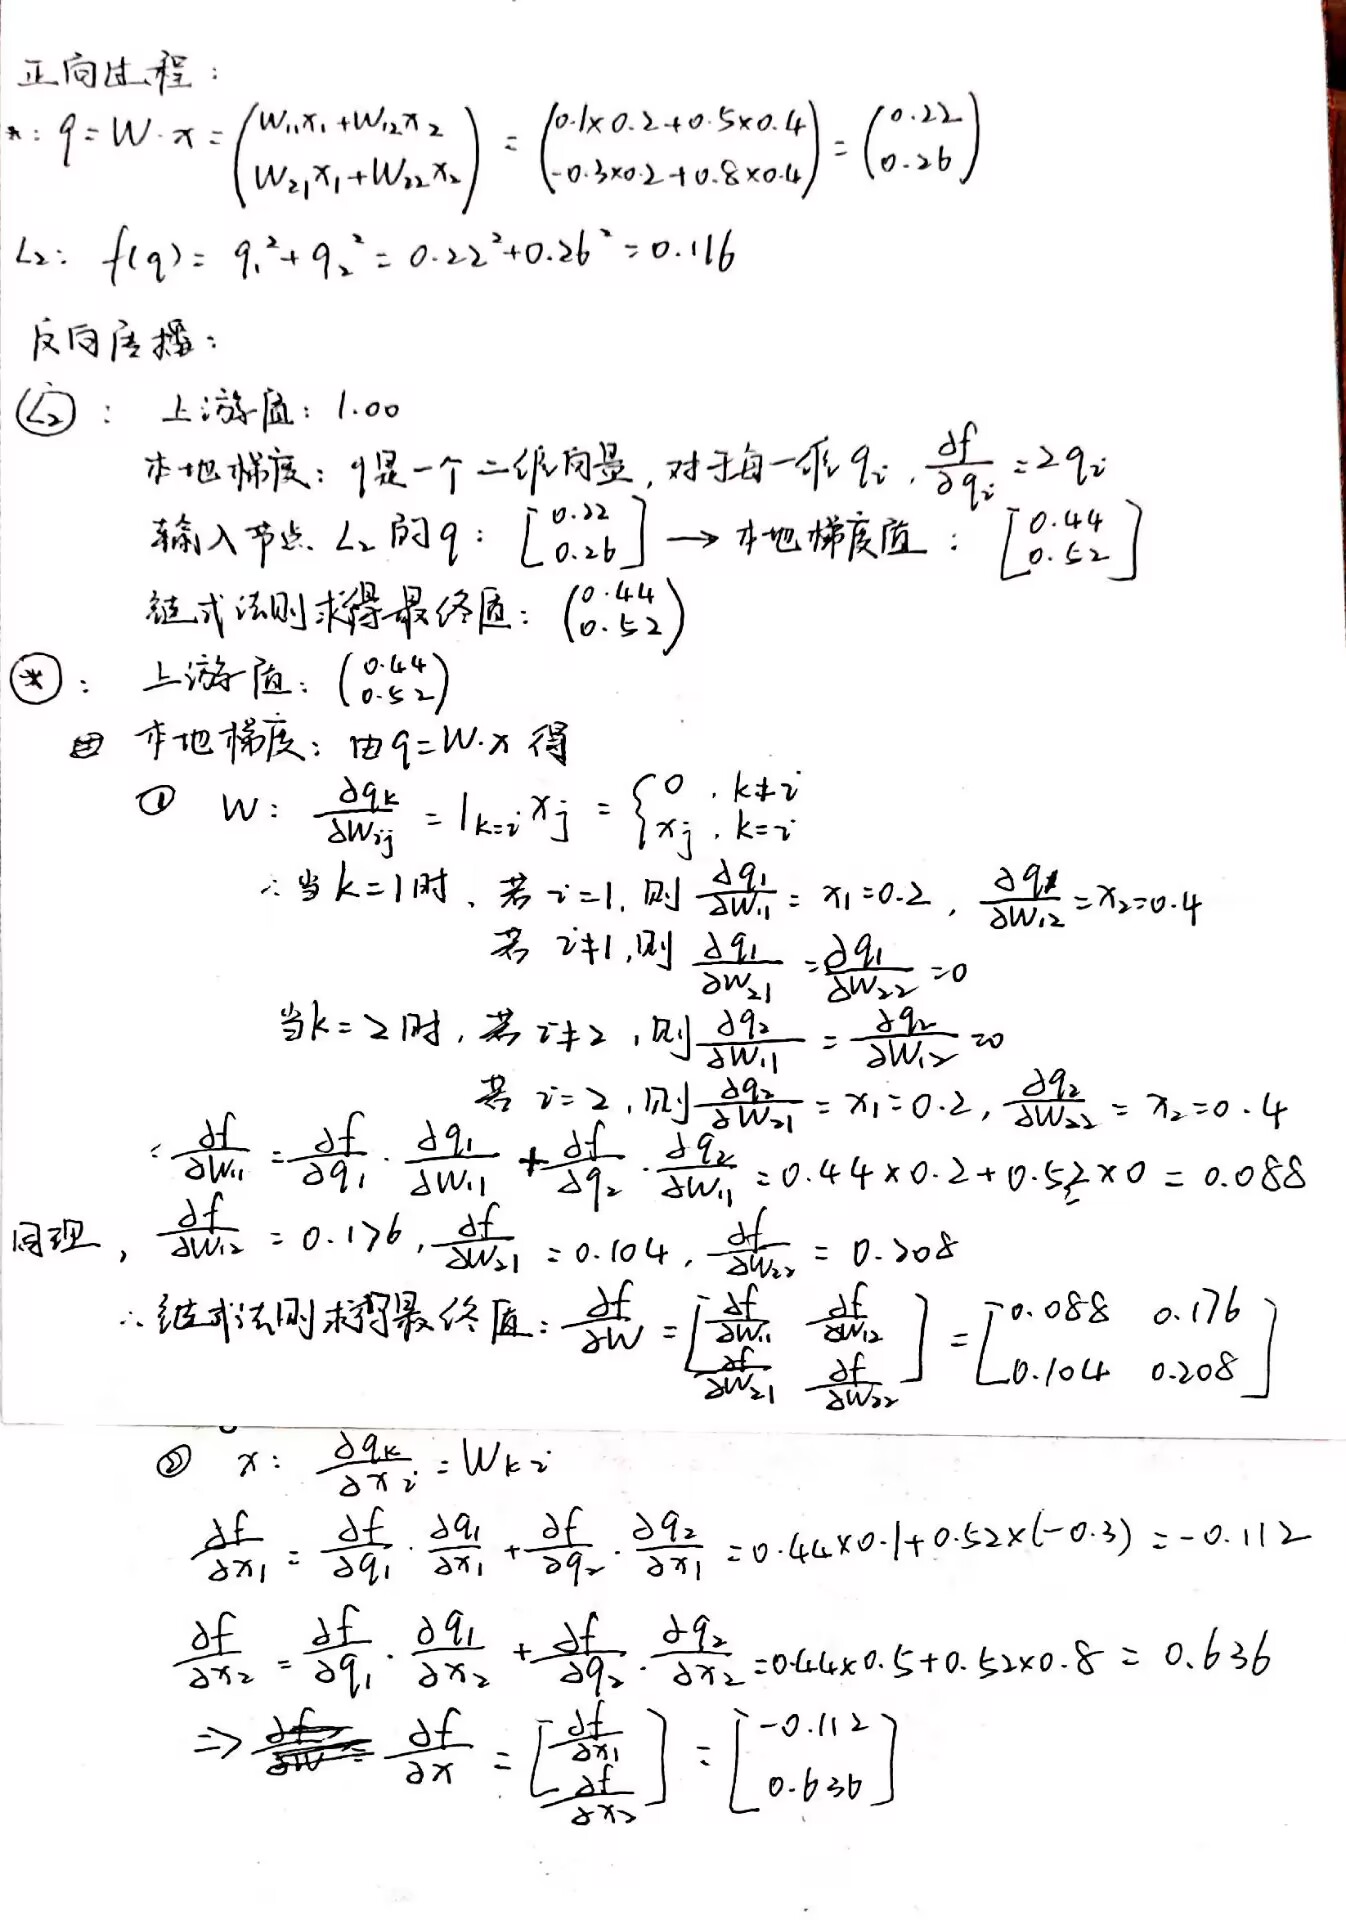 正向过程：
*：q = W·x = (W₁₁x₁+W₁₂x₂ ; W₂₁x₁+W₂₂x₂) = (0.1×0.2+0.5×0.4 ; -0.3×0.2+0.8×0.4) = (0.22 ; 0.26)
L₂： f(q) = q₁²+q₂² = 0.22²+0.26² = 0.116
反向传播：
L₂： 上游值：1.00
本地梯度：q是一个二维向量，对于每一维qᵢ，∂f/∂qᵢ = 2qᵢ
输入节点L₂的q：[0.22 ; 0.26] → 本地梯度值：[0.44 ; 0.52]
链式法则求得最终值：(0.44 ; 0.52)
*： 上游值：(0.44 ; 0.52)
本地梯度：由q=W·x得
① W：∂qₖ/∂Wᵢⱼ = 1ₖ₌ᵢxⱼ = {0，k≠i ; xⱼ，k=i
∴当k=1时，若i=1，则∂q₁/∂W₁₁ = x₁=0.2，∂q₁/∂W₁₂=x₂=0.4
若i≠1，则∂q₁/∂W₂₁ = ∂q₁/∂W₂₂ =0
当k=2时，若i≠2，则∂q₂/∂W₁₁ = ∂q₂/∂W₁₂ =0
若i=2，则∂q₂/∂W₂₁ = x₁=0.2，∂q₂/∂W₂₂ = x₂=0.4
∴∂f/∂W₁₁ = ∂f/∂q₁ · ∂q₁/∂W₁₁ + ∂f/∂q₂ · ∂q₂/∂W₁₁ = 0.44×0.2+0.52×0 = 0.088
同理，∂f/∂W₁₂ = 0.176，∂f/∂W₂₁ = 0.104，∂f/∂W₂₂ = 0.208
∴链式法则求得最终值：∂f/∂W = [∂f/∂W₁₁ ∂f/∂W₁₂ ; ∂f/∂W₂₁ ∂f/∂W₂₂] = [0.088 0.176 ; 0.104 0.208]
② x：∂qₖ/∂xᵢ = Wₖᵢ
∂f/∂x₁ = ∂f/∂q₁ · ∂q₁/∂x₁ + ∂f/∂q₂ · ∂q₂/∂x₁ = 0.44×0.1+0.52×(-0.3) = -0.112
∂f/∂x₂ = ∂f/∂q₁ · ∂q₁/∂x₂ + ∂f/∂q₂ · ∂q₂/∂x₂ = 0.44×0.5+0.52×0.8 = 0.636
⇒ ∂f/∂x = [∂f/∂x₁ ; ∂f/∂x₂] = [-0.112 ; 0.636]